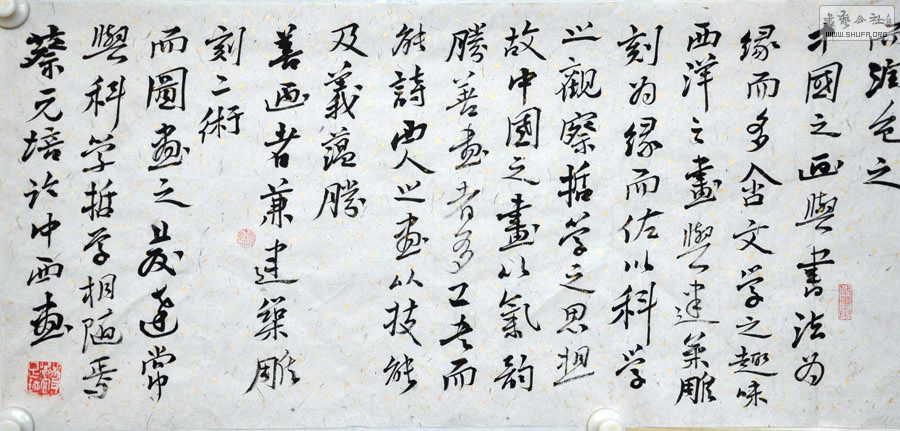 渲色之
中國之画與書法为
緣而多含文学之趣味
西洋之畫與建築雕
刻为緣而佐以科学
之觀察哲学之思想
故中國之畫以氣韵
勝善畫者多工书而
能詩西人之画以技能
及義蘊勝
善画者兼建築雕
刻二術
而圖画之发達常
與科学哲学相随焉
蔡元培论中西画
書藝公社
WWW.SHUFA.ORG